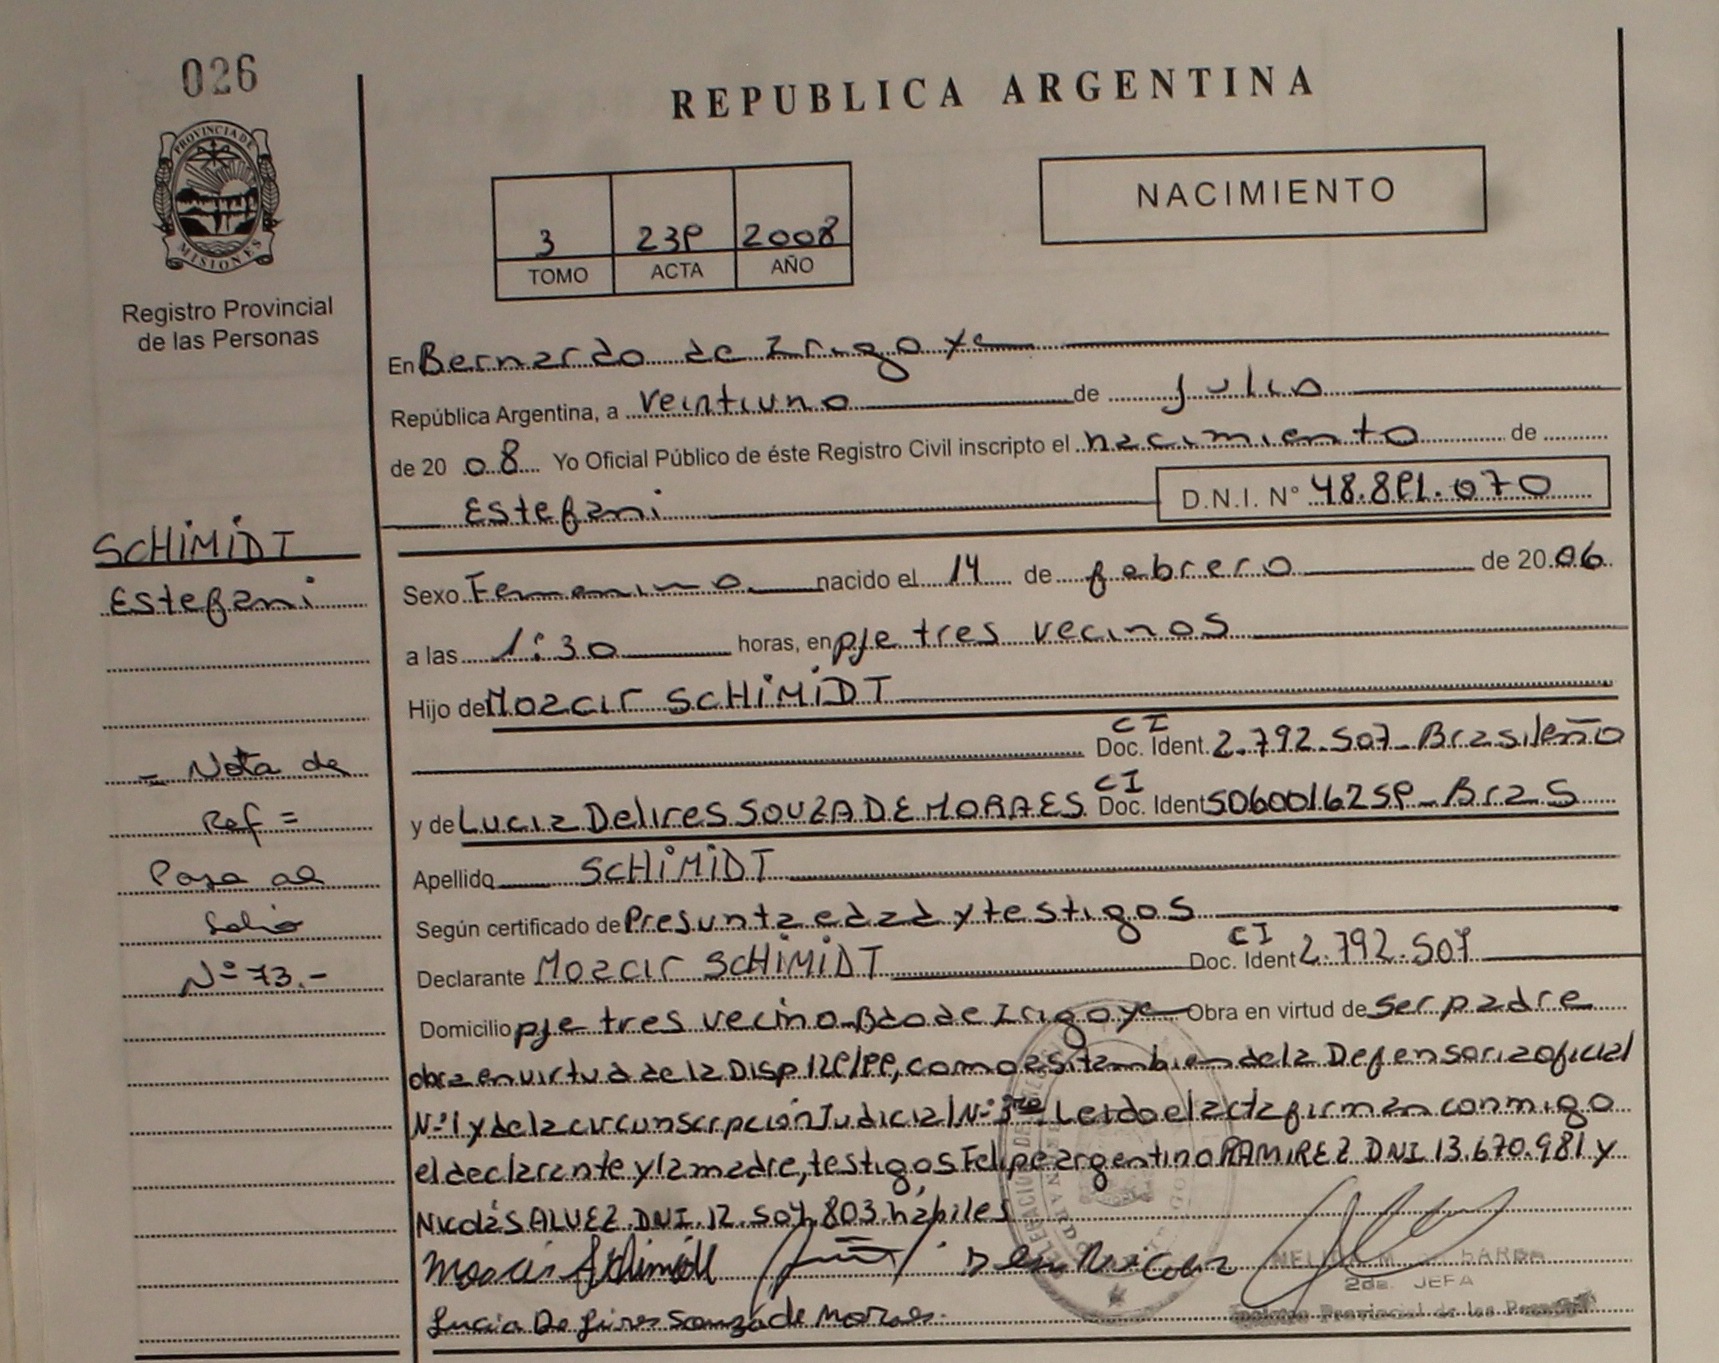 026
REPUBLICA ARGENTINA
PROVINCIA DE
MISIONES
Registro Provincial
de las Personas
3 239 2008
TOMO ACTA AÑO
NACIMIENTO
En Bernardo de Irigoye
República Argentina, a veintiuno de Julio
de 20 08 Yo Oficial Público de éste Registro Civil inscripto el nacimiento de
Estefani D.N.I. N° 48.891.070
SCHiMiDT
Estefani
Sexo Femenino nacido el 14 de febrero de 20 06
a las 1:30 horas, en pje tres vecinos
Hijo de Moacir SCHiMiDT
CI
Doc. Ident. 2.792.507 - Brasileño
CI
y de Lucia Delires SOUZA DE MORAES Doc. Ident 5060016259 - Bras
Apellido SCHiMiDT
Según certificado de Presunta edad y testigos
CI
Declarante Moacir SCHiMiDT Doc. Ident 2.792.507
Domicilio pje tres vecino - Bdo de Irigoye Obra en virtud de ser padre
obra en virtud de la Disp 129/99, como asi tambien de la Defensoria oficial
N°1 y de la circunscrpción Judicial N° 3ra Leido el acta firman conmigo
el declarante y la madre, testigos Felipe argentino RAMIREZ DNI 13.670.981 y
Nicolás ALVEZ DNI. 12.507.803 hábiles
- Nota de
Ref =
Pasa al
folio
N° 73.-
Moacir Schimidt
Lucia De lires Souza de Moraes.
2da. JEFA
Provincial de las